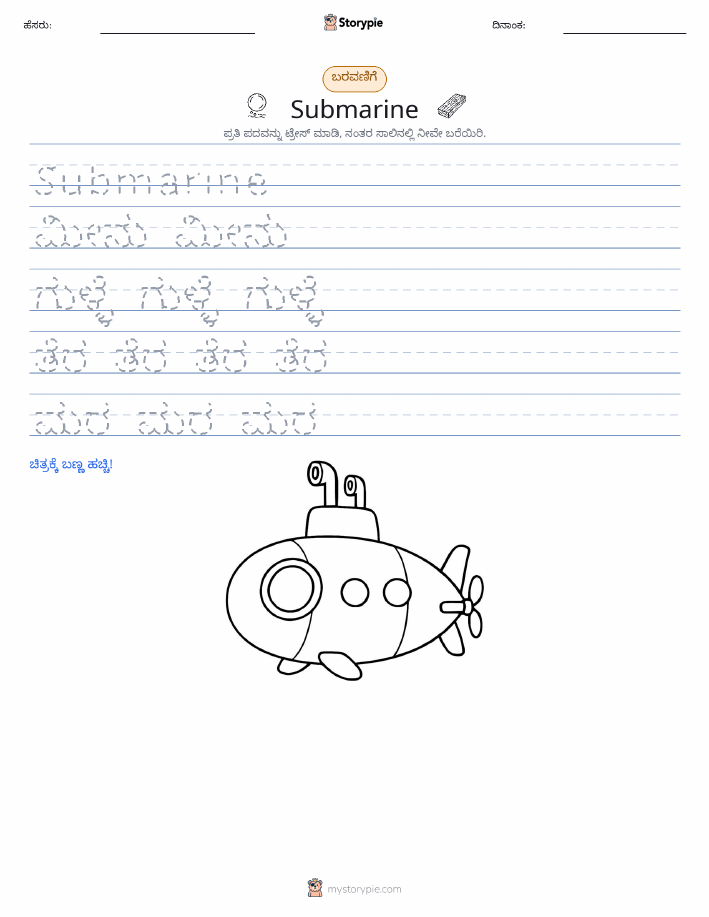 ಹೆಸರು:
Storypie
ದಿನಾಂಕ:
ಬರವಣಿಗೆ
Submarine
ಪ್ರತಿ ಪದವನ್ನು ಟ್ರೇಸ್ ಮಾಡಿ, ನಂತರ ಸಾಲಿನಲ್ಲಿ ನೀವೇ ಬರೆಯಿರಿ.
Submarine
ಮೀನು ಮೀನು
ಗುಳ್ಳೆ ಗುಳ್ಳೆ ಗುಳ್ಳೆ
ತೆರ ತೆರ ತೆರ ತೆರ
ಮರ ಮರ ಮರ
ಚಿತ್ರಕ್ಕೆ ಬಣ್ಣ ಹಚ್ಚಿ!
mystorypie.com